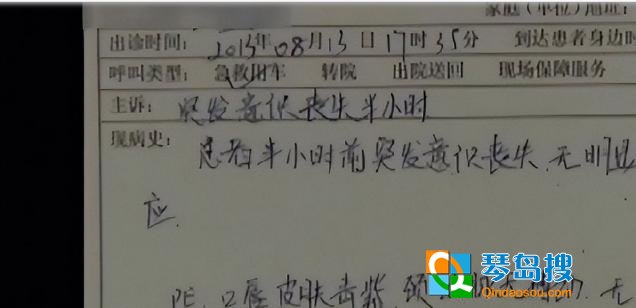 家庭(单位)地址:
出诊时间: 2013年08月13日17时35分 到达患者身边时
呼叫类型: 急救用车 转院 出院送回 现场保障服务
主诉: 突发意识丧失半小时
现病史:
患者半小时前突发意识丧失.无明显
应.
PE: 口唇皮肤青紫 颈 动 无
琴岛搜
Qindaosou.com